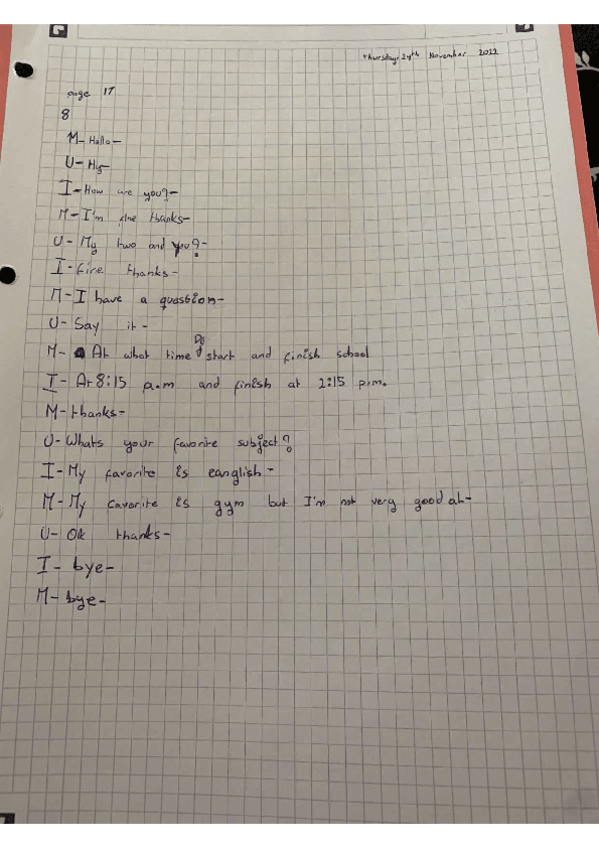 Thursday, 24th November 2022
page 17
8
M- Hello-
U- Hy-
I- How are you?-
M- I'm fine thanks-
U- My two and you?-
I- fire thanks-
M- I have a question-
U- Say it-
Do
M- At what time start and finish school
I- At 8:15 a.m and finish at 2:15 p.m.
M- thanks-
U- Whats your favorite subject?
I- My favorite is eanglish-
M- My favorite is gym but I'm not very good at-
U- Ok thanks-
I- bye-
M- bye-